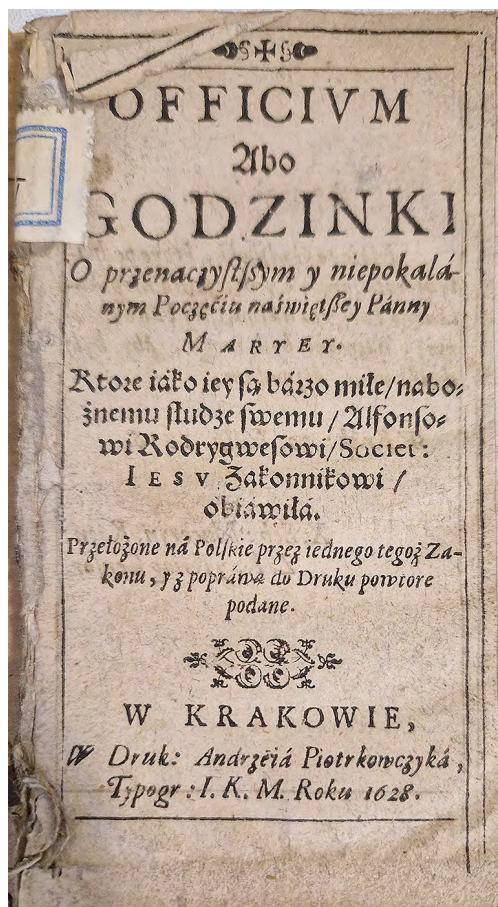 OFFICIVM
Abo
GODZINKI
O przenaczyſtſzym y niepokalá-
nym Poczęćiu naświętßey Pánny
MARYEY.
Ktore iáko iey są bárzo miłe/nabo-
żnemu słudze swemu / Alfonso-
wi Rodrygwesowi/Societ:
IESV Zakonnikowi /
obiáwiłá.
Przełożone ná Polſkie przez iednego tegoż Za-
konu, y z popráwą do Druku powtore
podane.
W KRAKOWIE,
W Druk: Andrzeiá Piotrkowczyká,
Typogr: I. K. M. Roku 1628.